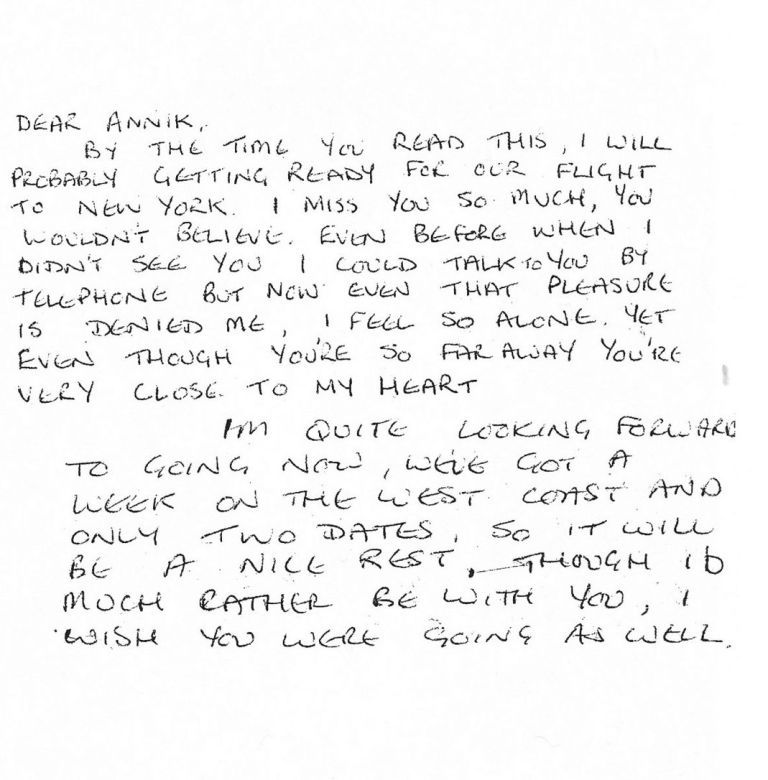 DEAR ANNIK,
BY THE TIME YOU READ THIS, I WILL
PROBABLY GETTING READY FOR OUR FLIGHT
TO NEW YORK. I MISS YOU SO MUCH, YOU
WOULDN'T BELIEVE. EVEN BEFORE WHEN I
DIDN'T SEE YOU I COULD TALK TO YOU BY
TELEPHONE BUT NOW EVEN THAT PLEASURE
IS DENIED ME, I FEEL SO ALONE. YET
EVEN THOUGH YOU'RE SO FAR AWAY YOU'RE
VERY CLOSE TO MY HEART
I'M QUITE LOOKING FORWARD
TO GOING NOW, WE'VE GOT A
WEEK ON THE WEST COAST AND
ONLY TWO DATES, SO IT WILL
BE A NICE REST, THOUGH I'D
MUCH RATHER BE WITH YOU, I
WISH YOU WERE GOING AS WELL.